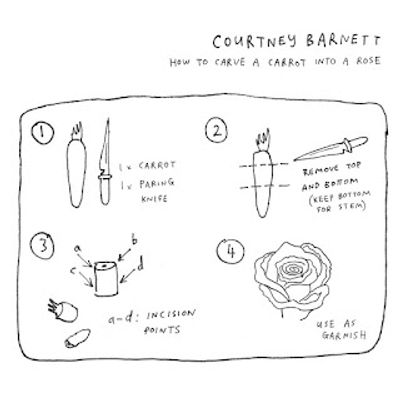 COURTNEY BARNETT
HOW TO CARVE A CARROT INTO A ROSE
1
1x CARROT
1x PARING
KNIFE
2
REMOVE TOP
AND BOTTOM
(KEEP BOTTOM
FOR STEM)
3
a
b
c
d
a-d: INCISION
POINTS
4
USE AS
GARNISH